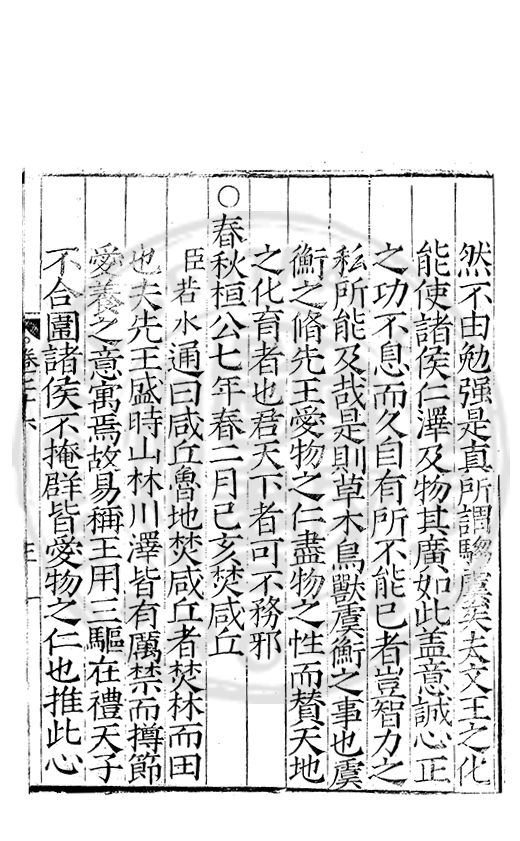 然不由勉强是真所謂騶虞矣夫文王之化
能使諸侯仁澤及物其廣如此盖意誠心正
之功不息而久自有所不能已者豈智力之
私所能及哉是則草木鳥獸虞衡之事也虞
衡之脩先王愛物之仁盡物之性而賛天地
之化育者也君天下者可不務邪
○春秋桓公七年春二月己亥焚咸丘
臣若水通曰咸丘魯地焚咸丘者焚林而田
也夫先王盛時山林川澤皆有厲禁而撙節
愛養之意寓焉故易稱王用三驅在禮天子
不合圍諸侯不掩群皆愛物之仁也推此心